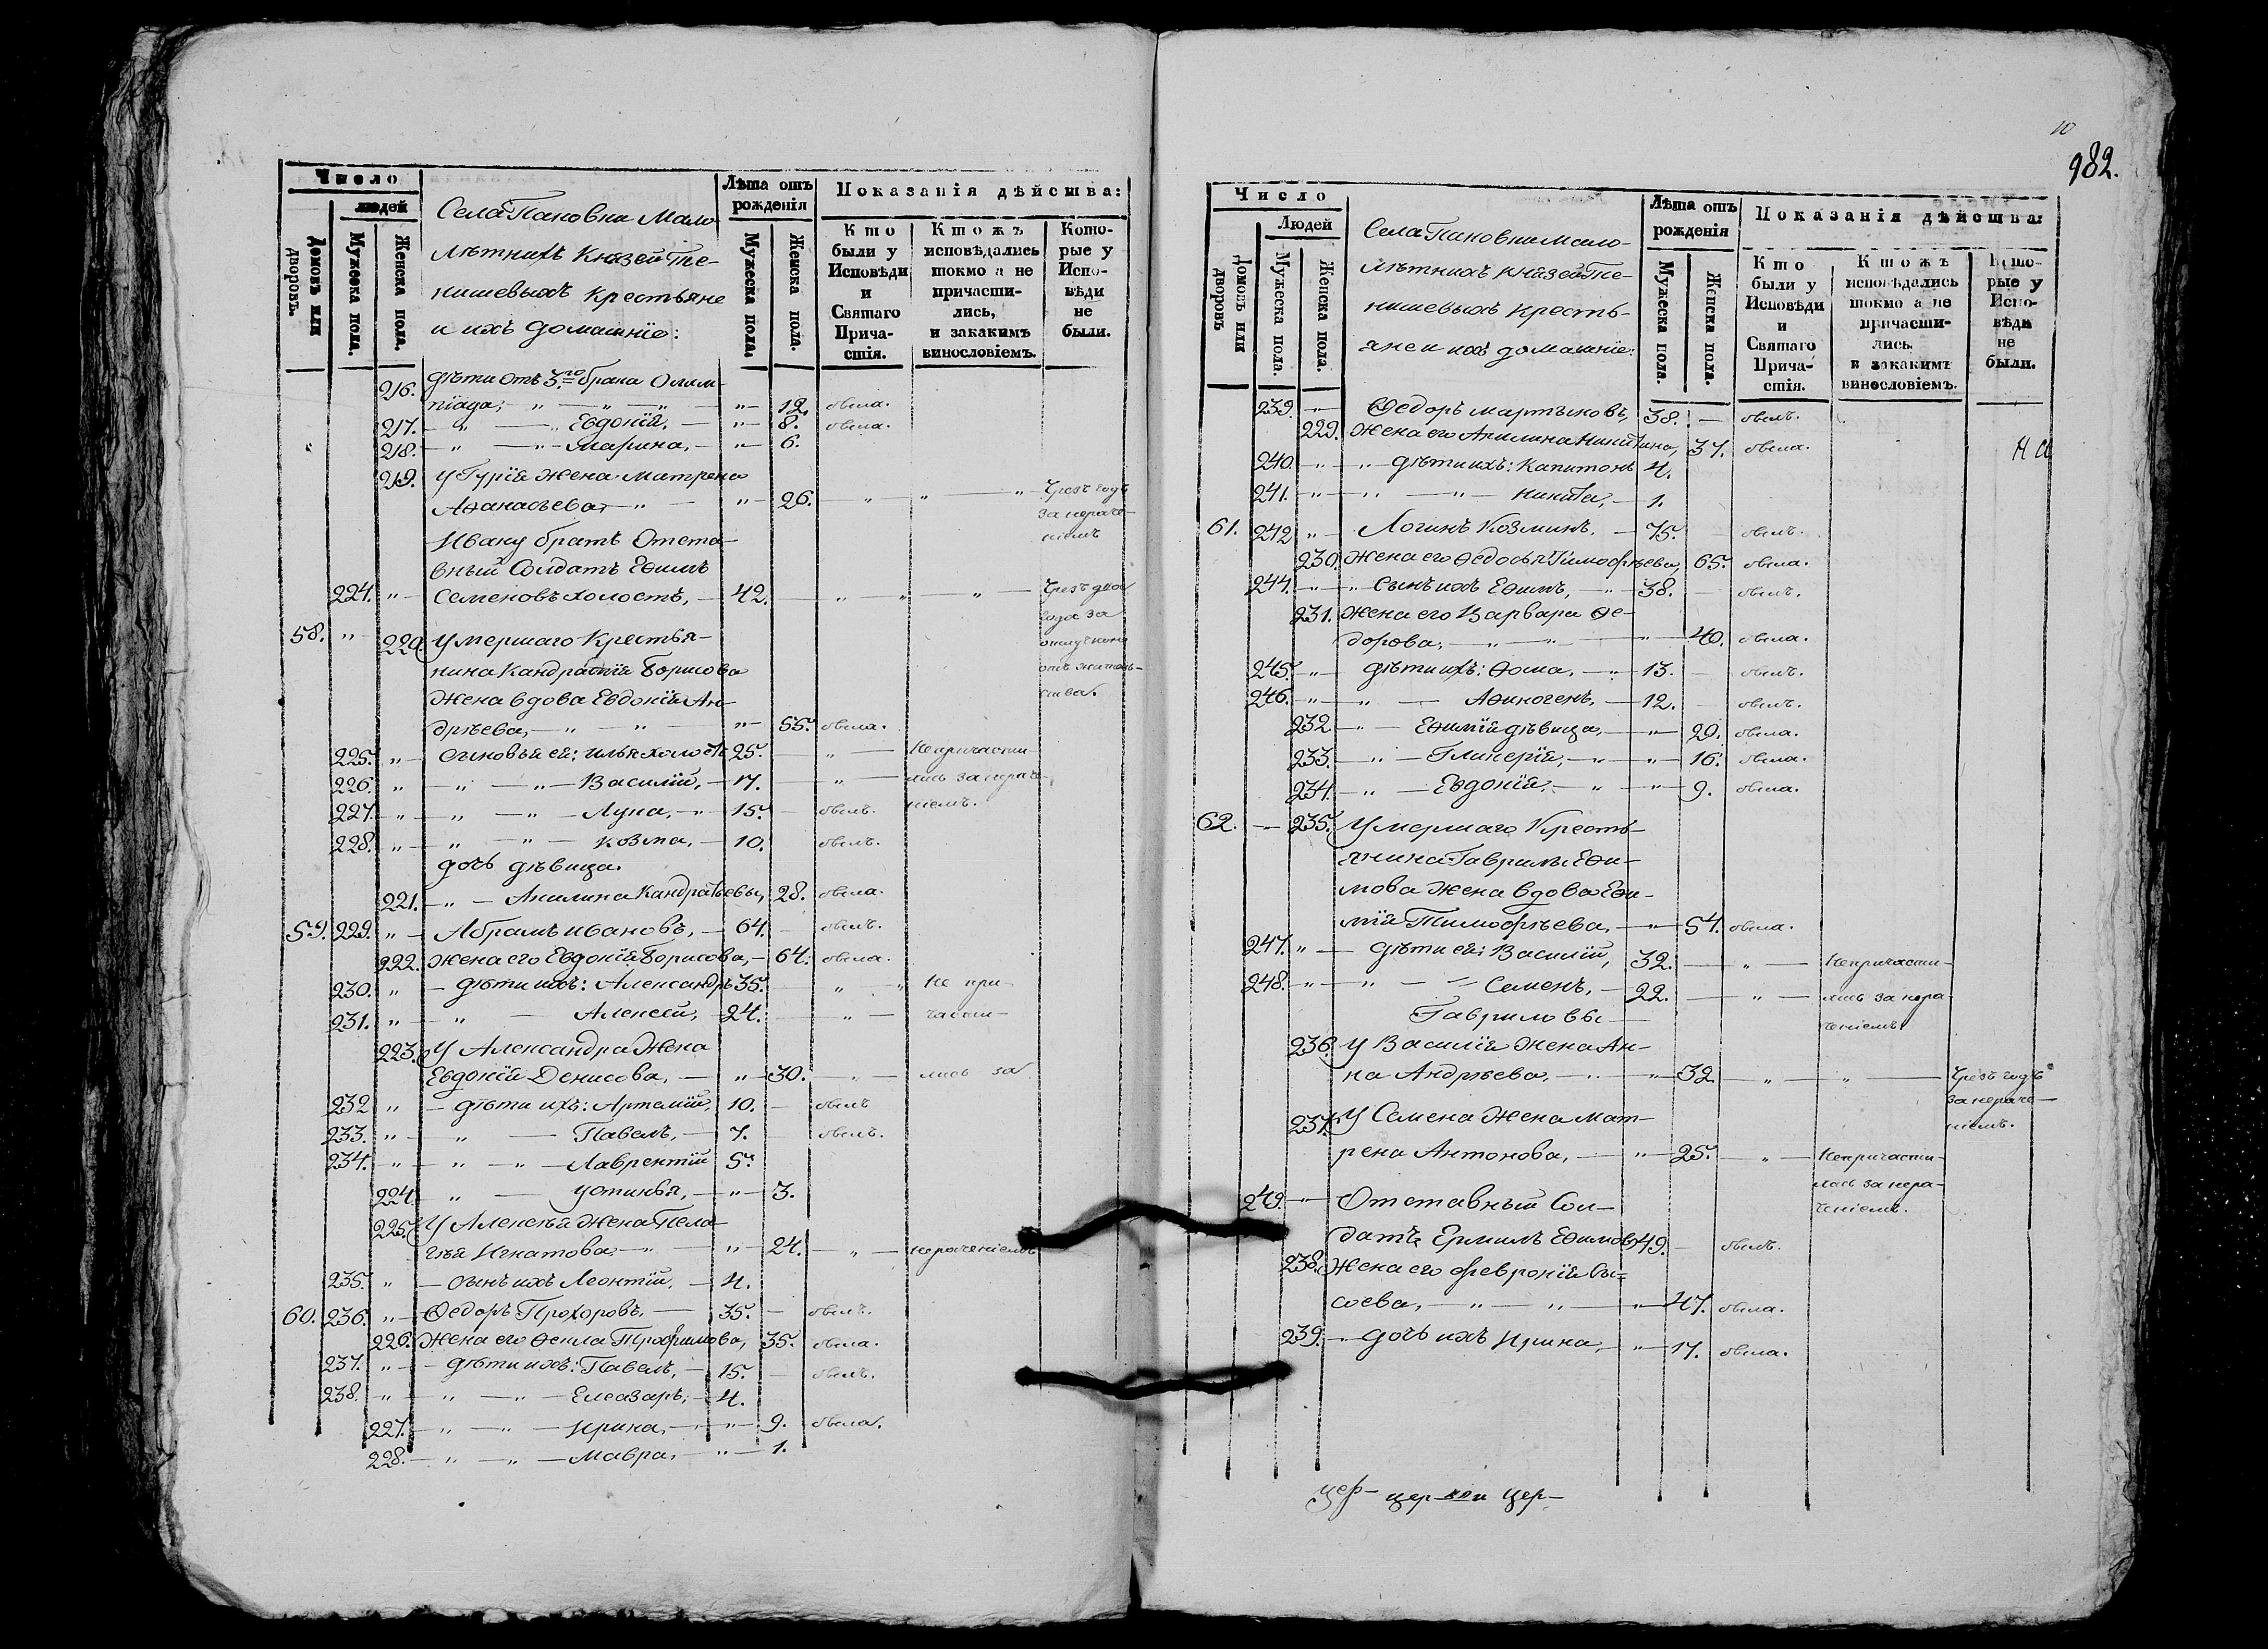 Число
людей
Домовъ или дворовъ.
Мужеска пола.
Женска пола.
Села Пановки Мало-
лѣтнихъ Князей Те-
нишевыхъ Крестьяне
и ихъ домашніе:
Лѣта отъ рожденія
Мужеска пола.
Женска пола.
Показанія дѣйства:
Кто были у Исповѣди и Святаго Прича-стія.
Ктожъ исповѣдались токмо а не причасти-лись, и закакимъ винословіемъ.
Кото-рые у Испо-вѣди не были.
216. дѣти отъ 3го брака Олим-
піада, „ — „ — „ — „ — 12. была.
217. „ — „ Евдокія, — „ — 8. была.
218. „ — „ — Марина, — „ — 6.
219. у Гурія жена Матрена
Афанасьева, — „ — „ — 26. „ „ „ Чрезъ годъ
за нераче-
ніемъ
Ивану братъ Отста-
вный Солдатъ Ефимъ
224. „ Семеновъ холостъ, — 42. — „ „ — „ — Чрезъ два
года за
отлучкою
отъ житель-
ства.
58. „ 220. умершаго Крестья-
нина Кандратія Борисова
жена вдова Евдокія Ан-
дрѣева, — „ — „ „ — 55. была.
225. „ — сыновья ея: Илья холостъ 25. — „ — Непричасти-
226. „ — „ — „ — Василій, — 17. „ — лись за нераче-
227. „ — „ — „ — Лука, — „ 15. — былъ. ніемъ.
228. „ — „ — „ — Козма, — 10. былъ.
дочь дѣвица
221. — „ — Акилина Кандратьева, 28. была.
59. 229. „ — Абрамъ Ивановъ, — 64. — былъ.
222. жена его Евдокія Борисова, — 64. была.
230. „ — дѣти ихъ: Александръ 35. — „ „ Не при-
231. „ — „ — Алексей, — 24. — „ — части-
223. у Александра жена
Евдокія Денисова, — „ — 30. — „ — лись за
232 „ — дѣти ихъ: Артемій, 10. — былъ
233. „ — „ — Павелъ, — 7. — былъ.
234. „ — „ — „ — Лаврентій 5.
224. „ — Устинья, — „ — 3.
225. у Алексѣя жена Пела-
гѣя Игнатова, — „ — „ — 24. — „ — нераченіемъ
235. „ — сынъ ихъ Леонтій, — 4.
60. 236. „ — Федоръ Прохоровъ, — 35. — былъ.
226. жена его Фекла Трофимова, 35. была.
237. „ — дѣти ихъ: Павелъ, — 15. — былъ.
238. „ — „ — „ — Елеазаръ, — 4.
227. — „ — „ — Ирина, — „ — 9. была.
228. — „ — „ — Мавра, — „ — 1.
10
982.
Число
Людей
Домовъ или дворовъ
Мужеска пола.
Женска пола.
Села Пановки мало-
лѣтнихъ князей Те-
нишевыхъ Кресть-
яне и ихъ домашніе:
Лѣта отъ рожденія
Мужеска пола.
Женска пола.
Показанія дѣйства:
Кто были у Исповѣди и Святаго Прича-стія.
Ктожъ исповѣдались токмо а не причасти-лись. и закакимъ винословіемъ.
Кото-рые у Испо-вѣди не были.
239. — Ѳедоръ Мартыновъ, 38. — былъ.
229. Жена его Акилина Никитина, 37. была.
240. „ — „ — дѣти ихъ: Капитонъ 4.
241. „ — „ — „ — Никита, — 1.
61. 242 „ — Логинъ Козминъ. — 75. былъ.
230. Жена его Ѳедосья Тимофѣева, 65. была.
244. „ — „ сынъ ихъ Ефимъ, — „ 38. — былъ.
231. Жена его Варвара Ѳе-
дорова, — „ — „ — 40. была.
245. „ — дѣти ихъ: Ѳома, — „ 13. — былъ.
246. „ — „ — Афиногенъ, — 12. — былъ.
232 — „ — Ефимія дѣвица, — „ — 20. была.
233. — „ — Гликерія, — „ — „ — 16. была.
234. — „ — Евдокія, — „ — „ — 9. была.
62. — 235. умершаго Кресть-
янина Гаврила Ефи-
мова жена вдова Ефи-
мія Тимофѣева, — „ — 54. была.
247. „ — дѣти ея: Василій, 32. — „ — Непричасти-
248. „ — „ — Семенъ, — 22. — „ — лись за нера-
Гавриловы — ченіемъ
236. у Василія жена Ан-
на Андрѣева, — „ — 32 — „ — „ — Чрезъ годъ
за нераче-
ніемъ.
237. у Семена жена Мат-
рена Антонова, — „ — 25. — „ — Непричасти-
лась за нера-
ченіемъ.
249. — Отставный Сол-
датъ Ермилъ Ефимовъ 49. — былъ.
238. Жена его Февронія Сы-
соева, — „ — „ — „ — 47. была.
239. — „ дочь ихъ Ирина, — „ — 17. была.